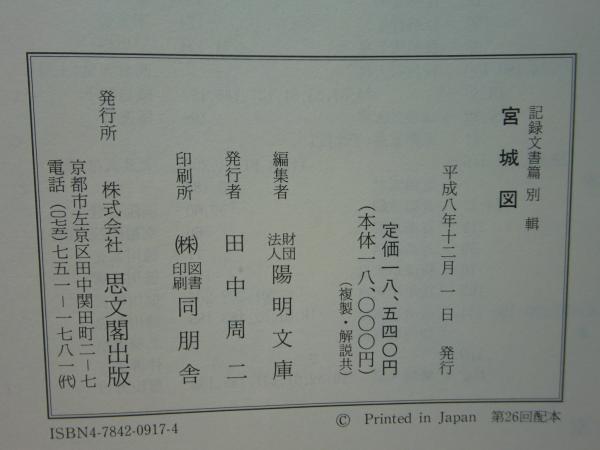 記録文書篇 別輯
宮城図
平成八年十二月一日 発行
定価一八、五四〇円
（本体一八、〇〇〇円）
（複製・解説共）
編集者 財団法人 陽明文庫
発行者 田中周二
印刷所 ㈱ 図書印刷 同朋舎
発行所 株式会社 思文閣出版
京都市左京区田中関田町二ー七
電話（〇七五）七五一ー一七八一㈹
© Printed in Japan 第26回配本
ISBN4-7842-0917-4